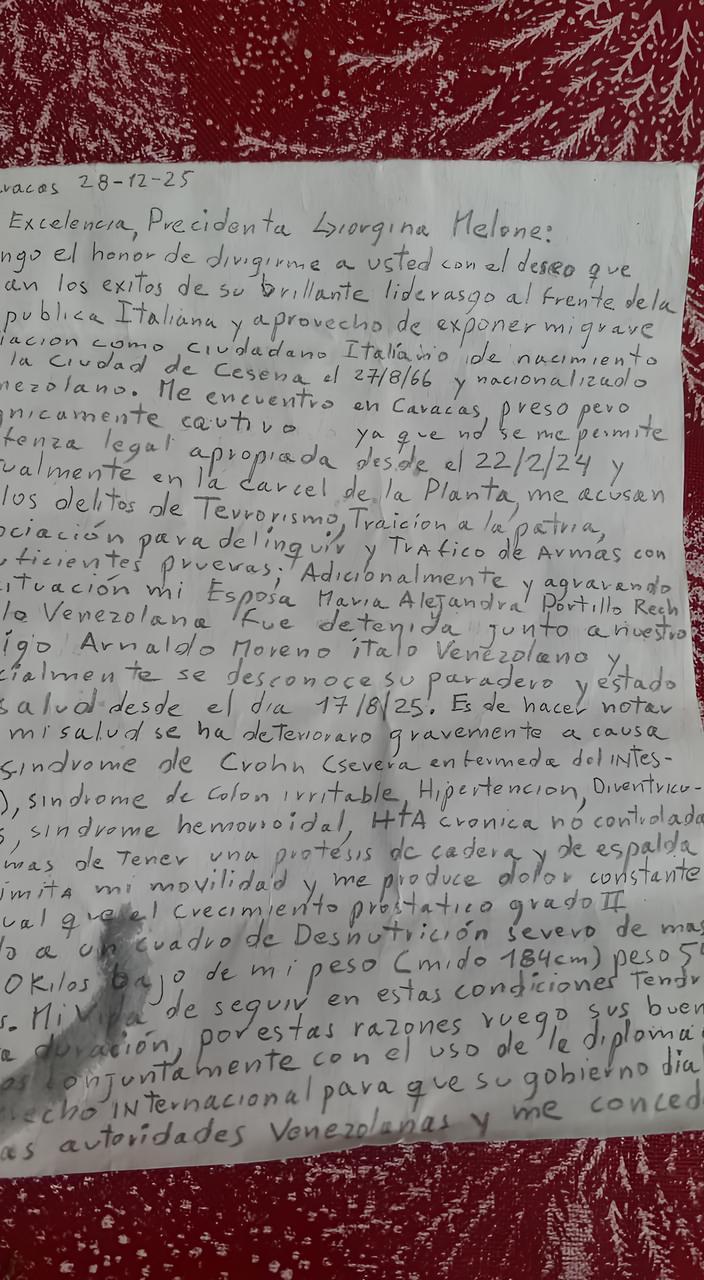 racas 28-12-25
Excelencia, Precidenta Giorgina Melone:
ngo el honor de divigirme a usted con el deseo que
an los exitos de su brillante liderasgo al frente de la
publica Italiana y aprovecho de exponer mi grave
iacion como ciudadano Italiano de nacimiento
la ciudad de Cesena el 27/8/66 y nacionalizado
nezolano. Me encuentro en Caracas, preso pero
nicamente cautivo ya que no se me permite
tenza legal apropiada desde el 22/2/24 y
ualmente en la carcel de la Planta, me acusan
los delitos de Terrorismo, Traicion a la patria,
ociación para delinquir y Trafico de Armas con
ficientes pruevas; Adicionalmente y agravando
ituación mi Esposa Maria Alejandra Portillo Rech
lo Venezolana fue detenida junto a nuestro
igo Arnaldo Moreno italo Venezolano y
cialmente se desconoce su paradero y estado
salud desde el dia 17/8/25. Es de hacer notar
mi salud se ha deterioraro gravemente a causa
sindrome de Crohn (severa enfermeda del INtes-
), sindrome de Colon irritable, Hipertencion, Diventricu-
s, sindrome hemorroidal, HtA cronica no controlada
mas de Tener una protesis de cadera y de espalda
imita mi movilidad y me produce dolor constante
ual que el crecimiento prostatico grado II
o a un cuadro de Desnutrición severo de mas
0 Kilos bajo de mi peso (mido 184cm) peso 5
s. Mi Vida de seguir en estas condiciones Tendr
a duración, por estas razones ruego sus buen
os conjuntamente con el uso de la diploma
echo INternacional para que su gobierno dia
as autoridades Venezolanas y me conced